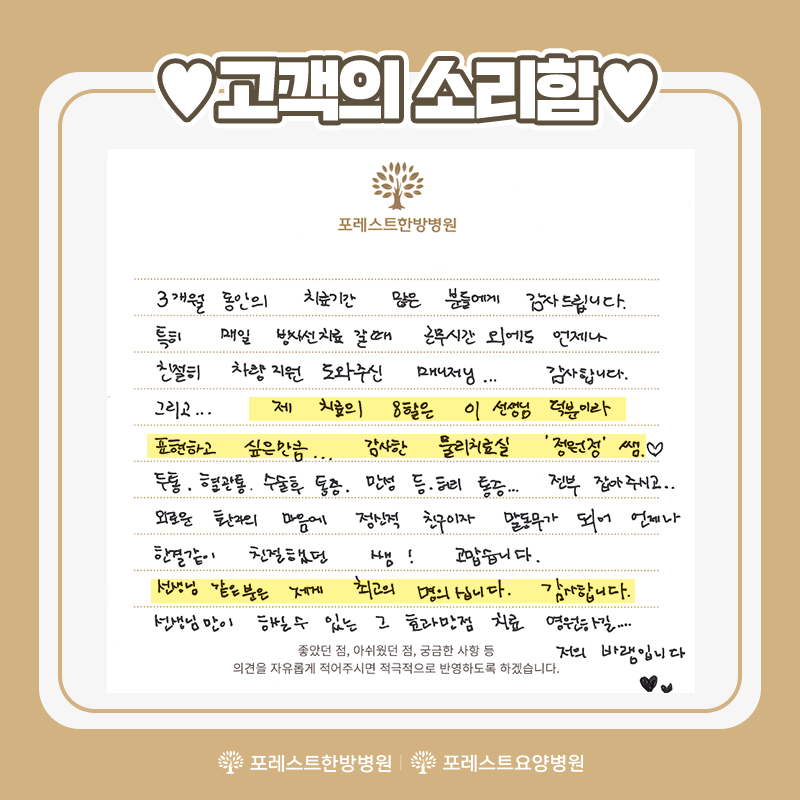 ♥고객의 소리함♥
포레스트한방병원
3개월 동안의 치료기간 많은 분들에게 감사드립니다.
특히 매일 방사선치료 갈때 근무시간 외에도 언제나
친절히 차량지원 도와주신 매니저님... 감사합니다.
그리고... 제 치료의 8할은 이 선생님 덕분이라
표현하고 싶은만큼... 감사한 물리치료실 '정원정' 쌤.♡
두통. 혈관통. 수술후 통증. 만성 등.허리 통증... 전부 잡아주시고..
외로운 환자의 마음에 정신적 친구이자 말동무가 되어 언제나
한결같이 친절했던 쌤! 고맙습니다.
선생님 같은분은 제게 최고의 명의십니다. 감사합니다.
선생님만이 해실수 있는 그 효과만점 치료 영원하길....
저의 바램입니다
좋았던 점, 아쉬웠던 점, 궁금한 사항 등
의견을 자유롭게 적어주시면 적극적으로 반영하도록 하겠습니다.
포레스트한방병원 | 포레스트요양병원